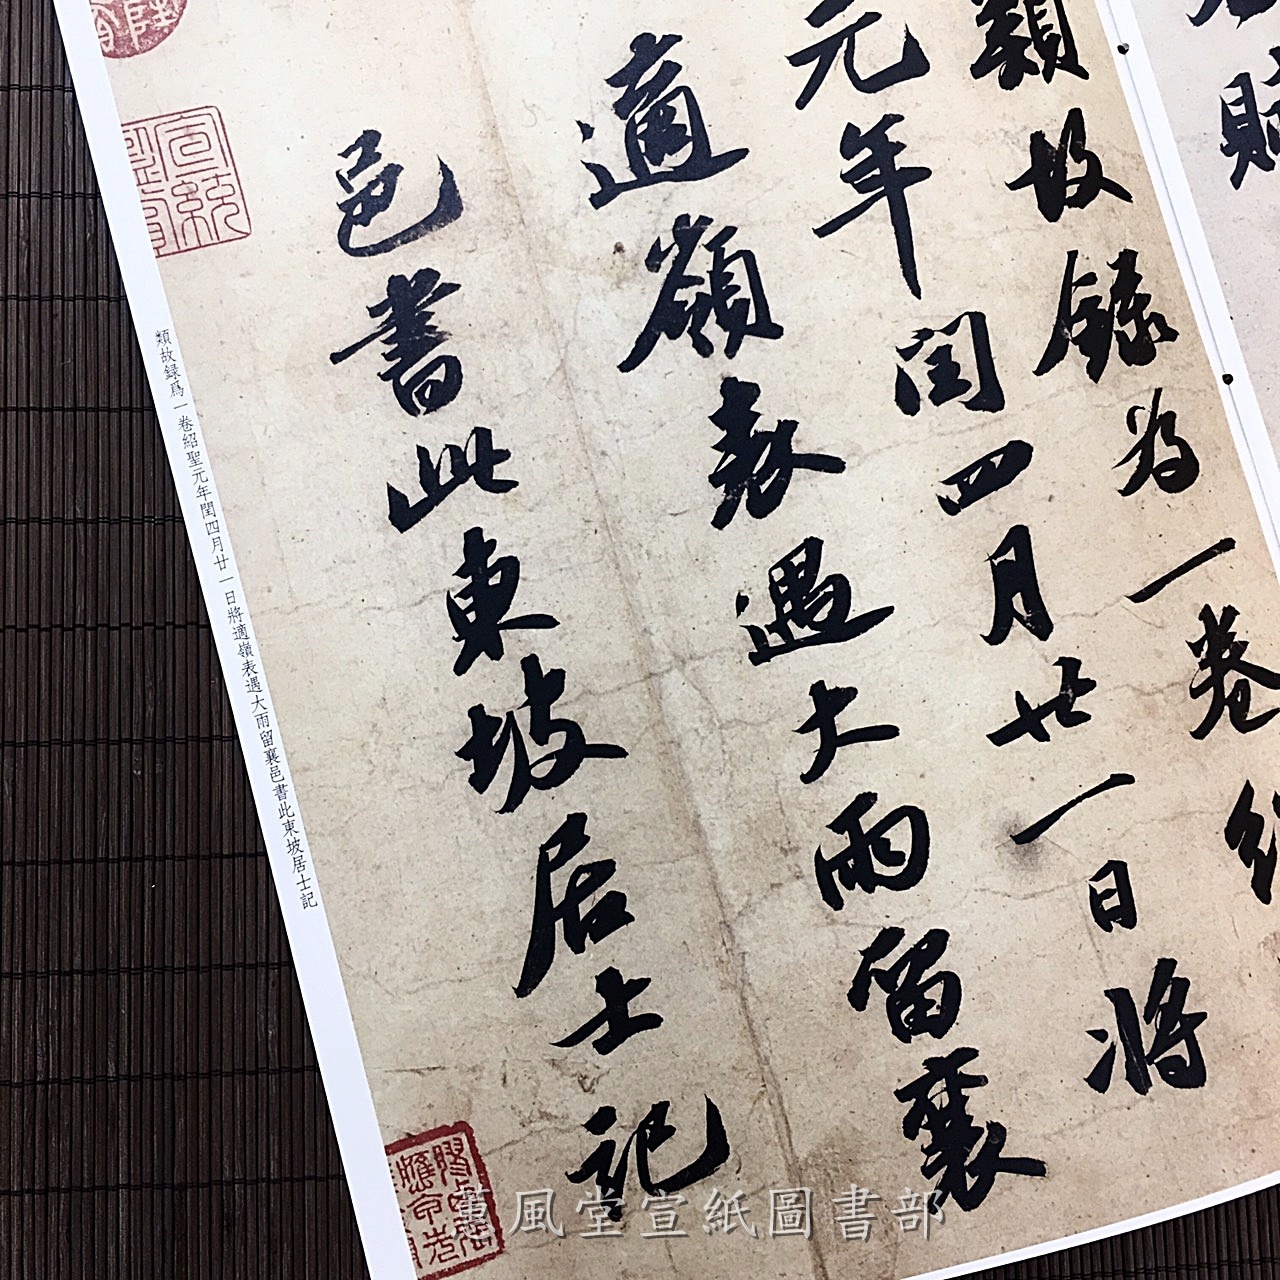 賦
類故録為一卷紹
元年閏四月廿一日將
適嶺表遇大雨留襄
邑書此東坡居士記
類故録爲一卷紹聖元年閏四月廿一日將適嶺表遇大雨留襄邑書此東坡居士記
宣統
蕙風堂宣紙圖書部